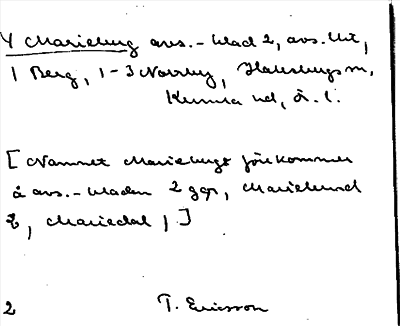 Y Marieberg avs.-blad 2, avs. Ut,
1 Berg, 1-3 Norrby, Hallsbergs sn,
Kumla hd, Ö. l.
[Namnet Marieberg förekommer
å avs.-bladen 2 ggr, Marielund
2, Mariedal 1]
2 T. Ericsson